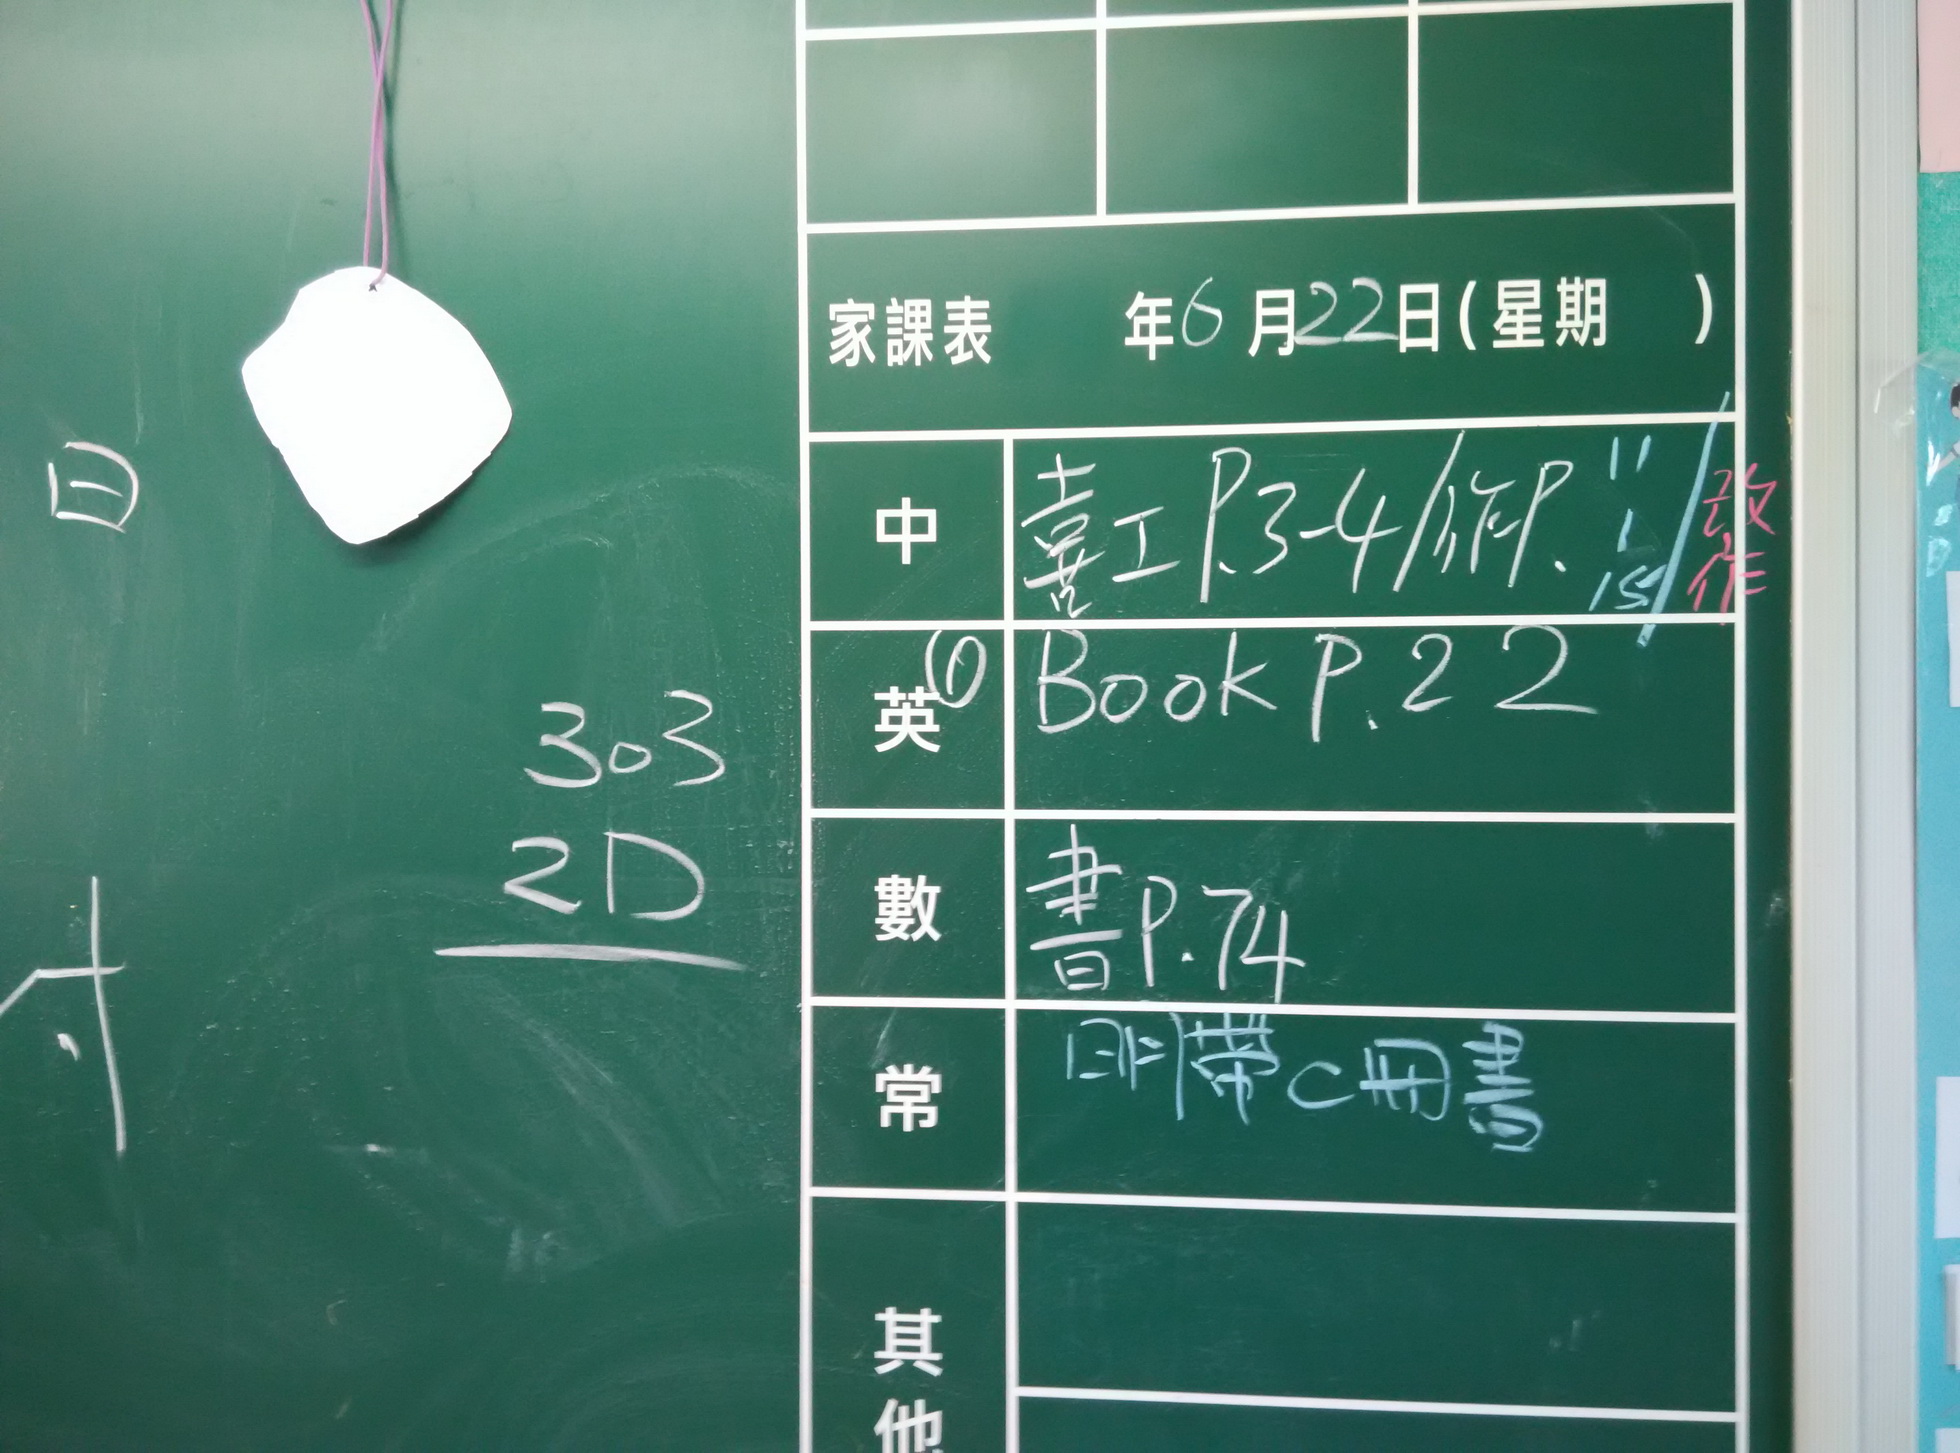 日
303
2D
家課表 年6月22日(星期 )
中 喜工 P.3-4/作P. 11 1 15/改作
英 ① Book P.22
數 書P.74
常 明帶C冊書
其他